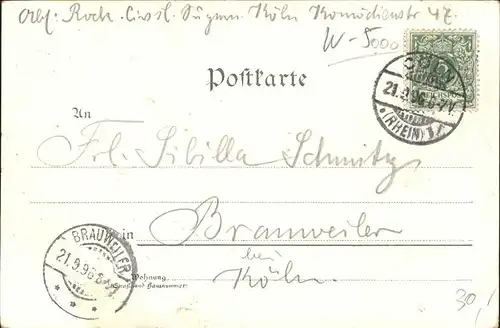 Köln Komödienstr 47.
W-5000
Postkarte
CÖLN
21.9.96.6-7V.
(RHEIN) 1
An
Frl. Sibilla Schmitz
in Brauweiler
bei
Köln.
Wohnung
(Straße und Hausnummer)
BRAUWEILER
21.9.96
30,